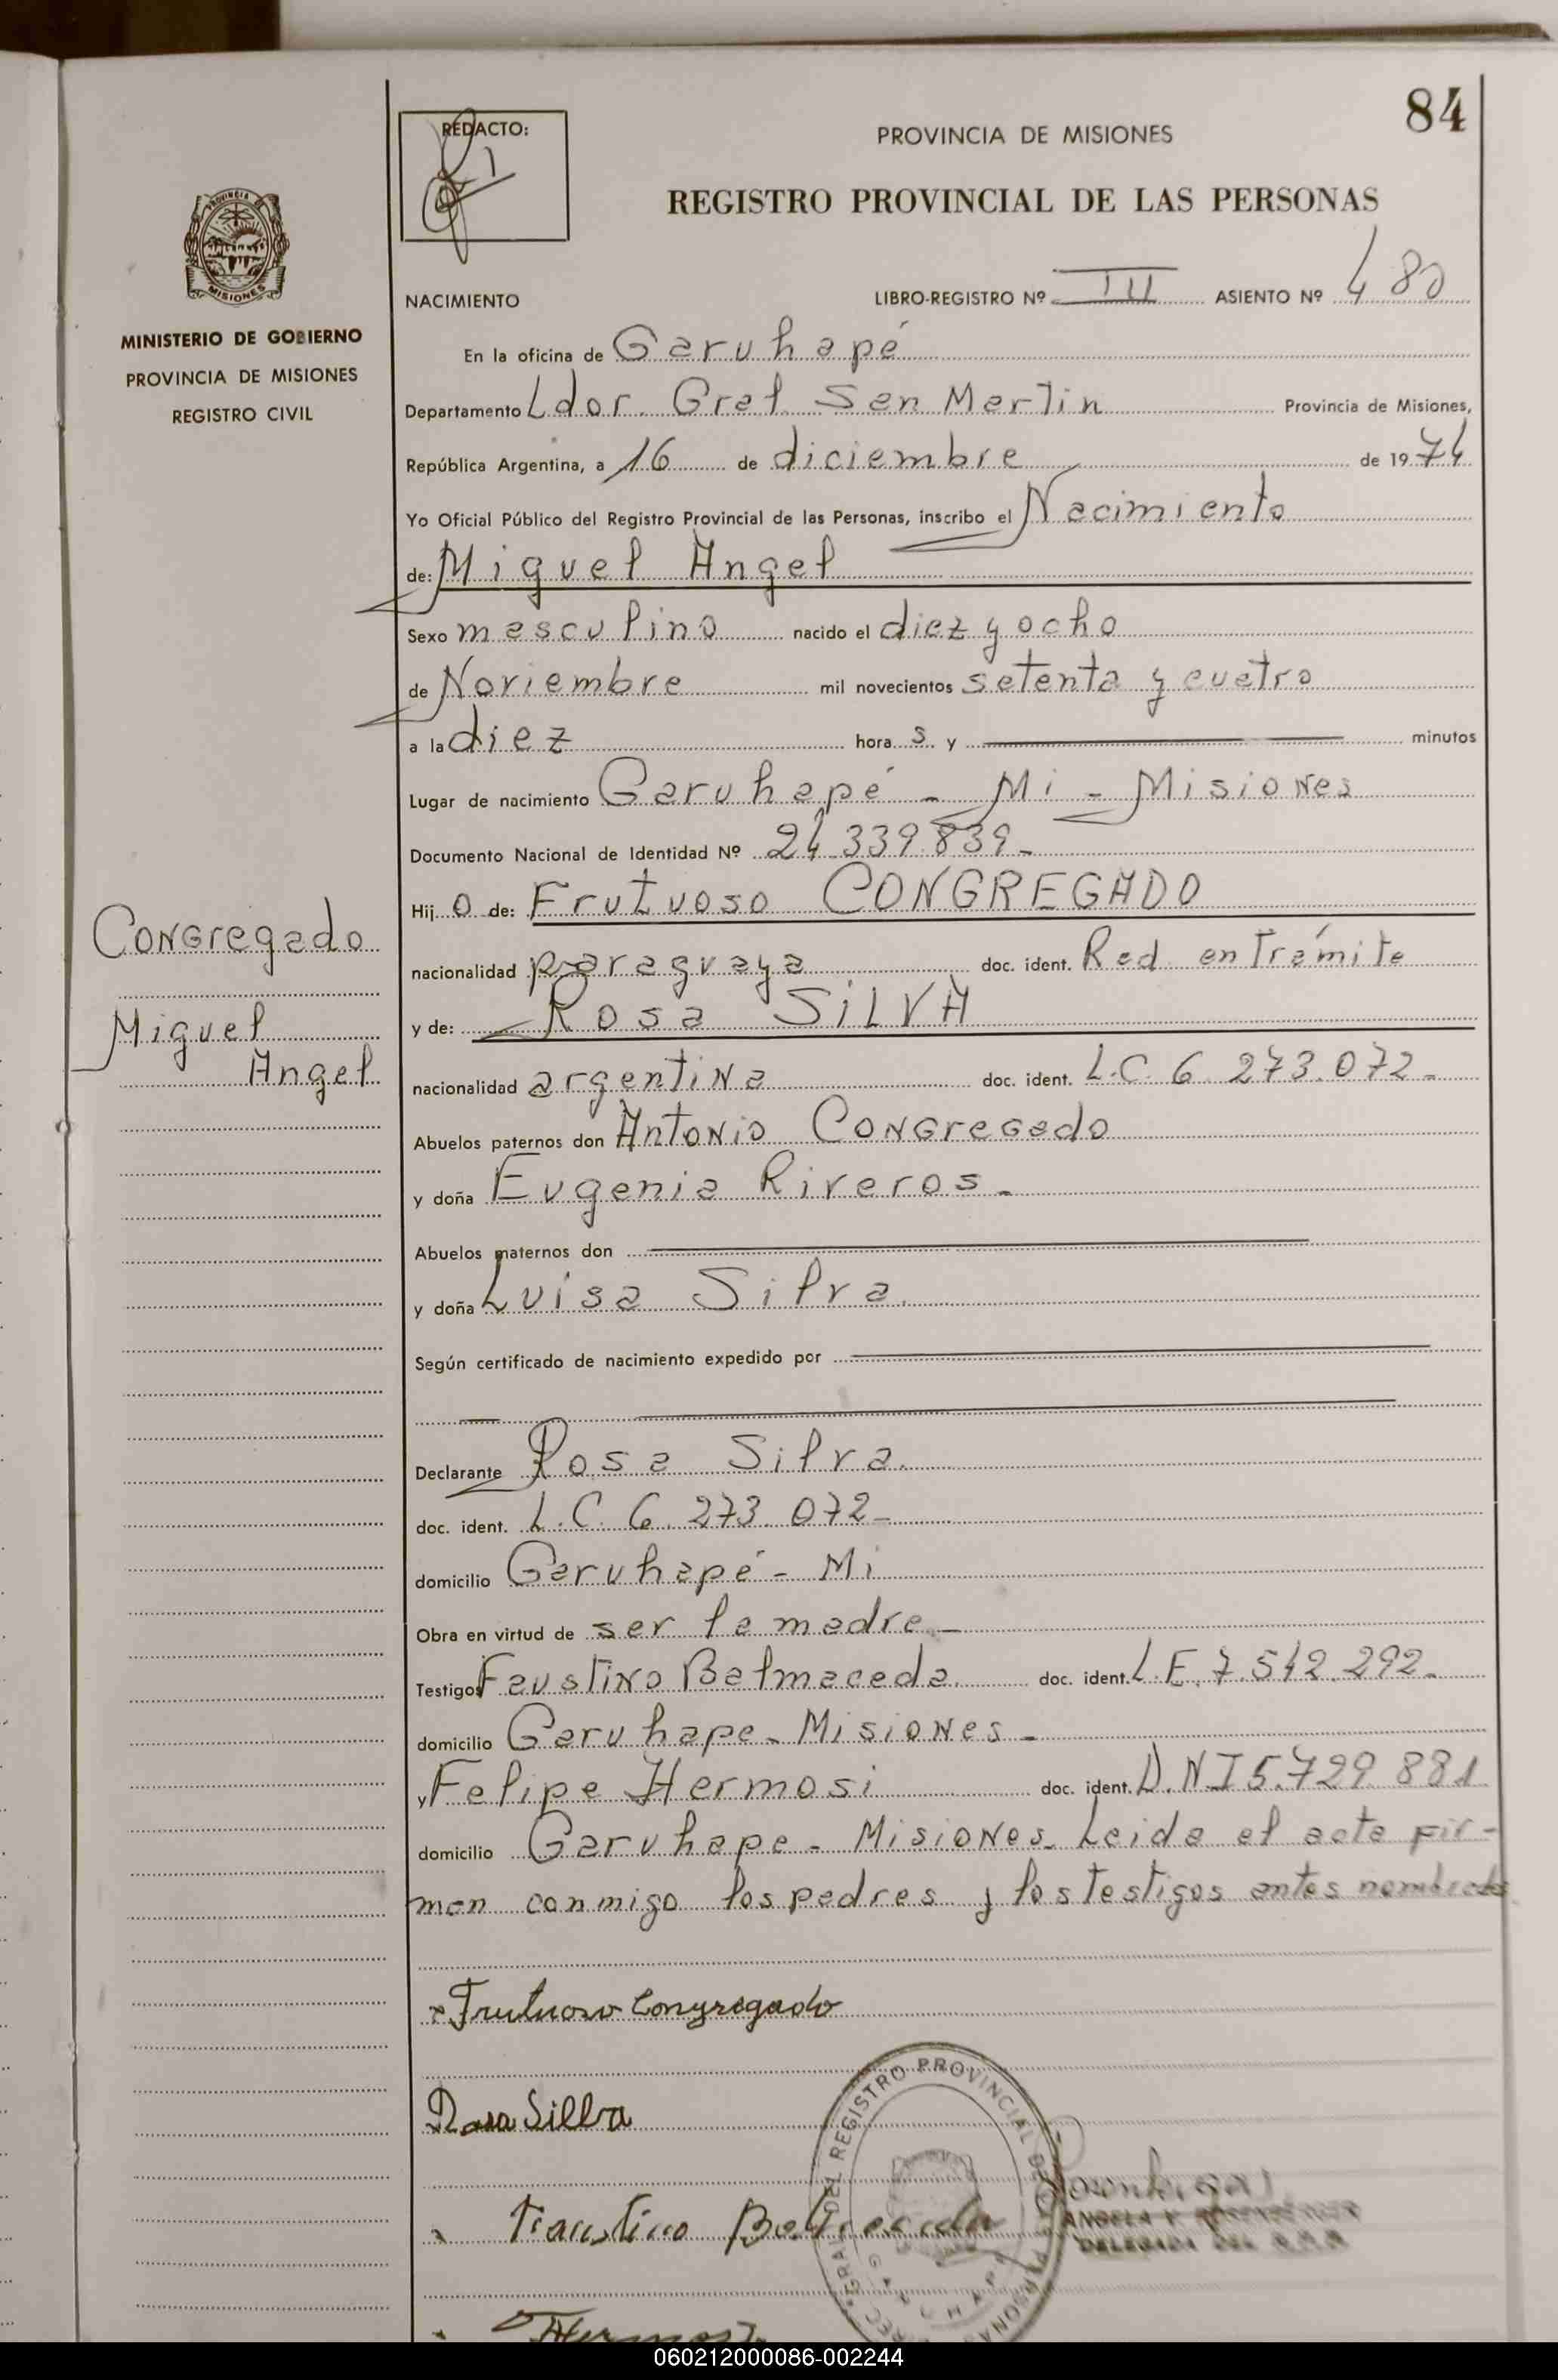 84
REDACTO:
PROVINCIA DE MISIONES
REGISTRO PROVINCIAL DE LAS PERSONAS
PROVINCIA DE
MISIONES
MINISTERIO DE GOBIERNO
PROVINCIA DE MISIONES
REGISTRO CIVIL
NACIMIENTO LIBRO-REGISTRO Nº III ASIENTO Nº 480
En la oficina de Garuhapé
Departamento Ldor. Gral San Martin Provincia de Misiones,
República Argentina, a 16 de diciembre de 1974
Yo Oficial Público del Registro Provincial de las Personas, inscribo el Nacimiento
de: Miguel Angel
Sexo masculino nacido el diez y ocho
de Noviembre mil novecientos setenta y cuatro
a la diez hora s y minutos
Lugar de nacimiento Garuhapé - Mi - Misiones
Documento Nacional de Identidad Nº 24.339.839-
Hij o de: Frutuoso CONGREGADO
Congregado
nacionalidad paraguaya doc. ident. Red en Trámite
Miguel
y de: Rosa SILVA
Angel
nacionalidad argentina doc. ident. L.C. 6.273.072-
Abuelos paternos don Antonio Congregado
y doña Eugenia Riveros-
Abuelos maternos don
y doña Luisa Silva.
Según certificado de nacimiento expedido por
Declarante Rosa Silva.
doc. ident. L.C. 6.273.072-
domicilio Garuhapé - Mi
Obra en virtud de ser la madre-
Testigos Faustino Balmaceda. doc. ident. L.E. 7.542.292-
domicilio Garuhape - Misiones-
y Felipe Hermosi doc. ident. D.N.I 5.729.881
domicilio Garuhape - Misiones. Leida el acta fir-
man conmigo los padres y los testigos antes nombrados
Frutuoso Congregado
Rosa Sillva
Faustino
REGISTRO PROVINCIAL
DELEGADA DEL
060212000086-002244